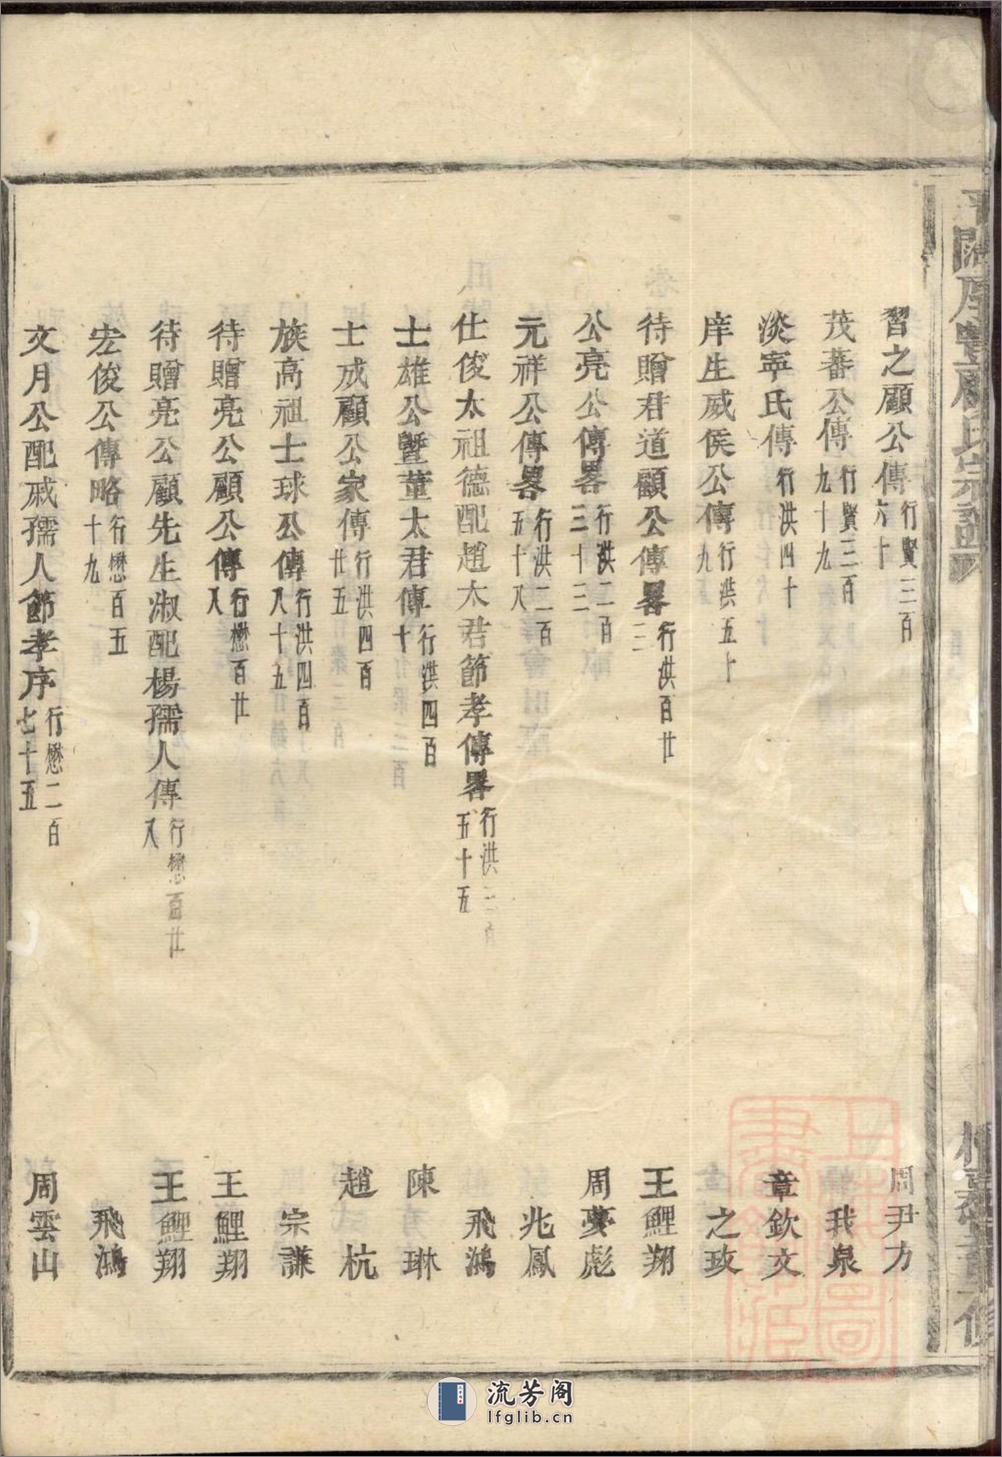 習之顧公傳 行賢三百六十 周尹方
茂蕃公傳 行賢三百九十九 我泉
淡寧氏傳 行洪四十 章欽文
庠生威侯公傳 行洪五十九 之攻
待贈君道顧公傳畧 行洪百廿三 王鯉翔
公亮公傳畧 行洪二百三十三 周夢彪
元祥公傳畧 行洪二百五十八 兆鳳
仕俊太祖德配趙太君節孝傳畧 行洪三百五十五 飛鴻
士雄公曁董太君傳 行洪四百十 陳琳
士成顧公家傳 行洪四百廿五 趙杭
族高祖士球公傳 行洪四百八十五 宗謙
待贈亮公顧公傳 行懋百廿八 王鯉翔
待贈亮公顧先生淑配楊孺人傳 行懋百廿八 王鯉翔
宏俊公傳略 行懋百五十九 飛鴻
文月公配戚孺人節孝序 行懋二百七十五 周雲山
流芳阁
lfglib.cn